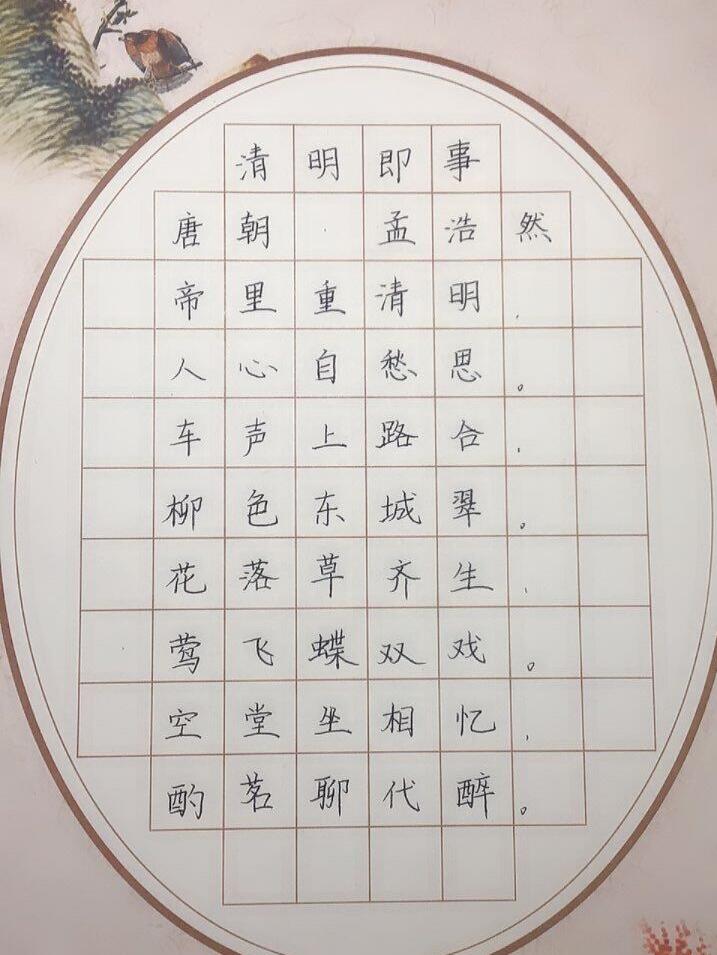 清明即事
唐朝·孟浩然
帝里重清明,
人心自愁思。
车声上路合,
柳色东城翠。
花落草齐生,
莺飞蝶双戏。
空堂坐相忆,
酌茗聊代醉。